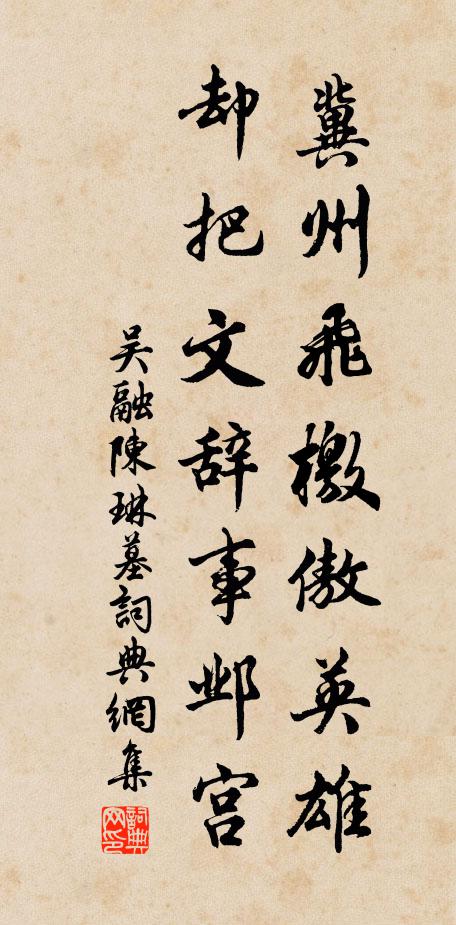 冀州飛檄傲英雄
却把文辞事邺宫
吴融陳琳墓詞典網集
詞典网印